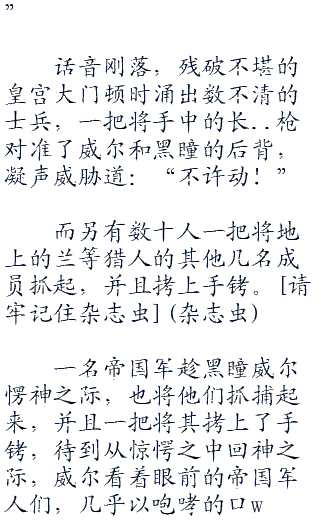 ”
话音刚落，残破不堪的
皇宫大门顿时涌出数不清的
士兵，一把将手中的长..枪
对准了威尔和黑瞳的后背，
凝声威胁道：“不许动！”
而另有数十人一把将地
上的兰等猎人的其他几名成
员抓起，并且拷上手铐。[请
牢记住杂志虫](杂志虫)
一名帝国军趁黑瞳威尔
愣神之际，也将他们抓捕起
来，并且一把将其拷上了手
铐，待到从惊愕之中回神之
际，威尔看着眼前的帝国军
人们，几乎以咆哮的口w